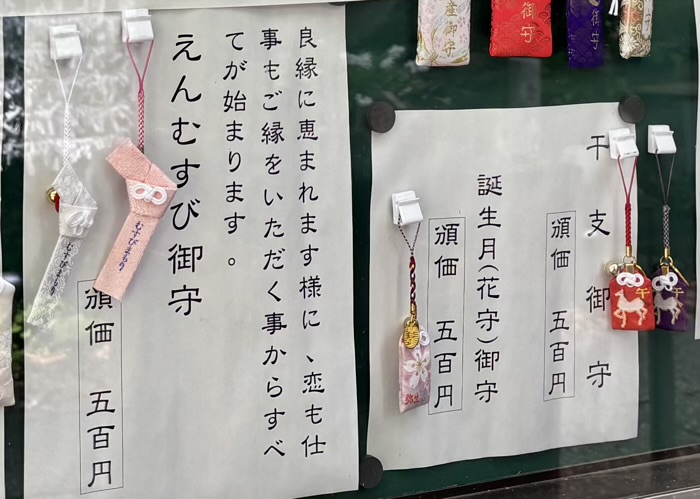 産御守
御守
御守
良縁に恵まれます様に、恋も仕
事もご縁をいただく事からすべ
てが始まります。
えんむすび御守
頒価 五百円
むすびまもり
むすびまもり
干支御守
頒価 五百円
誕生月(花守)御守
頒価 五百円
午
午
弥生